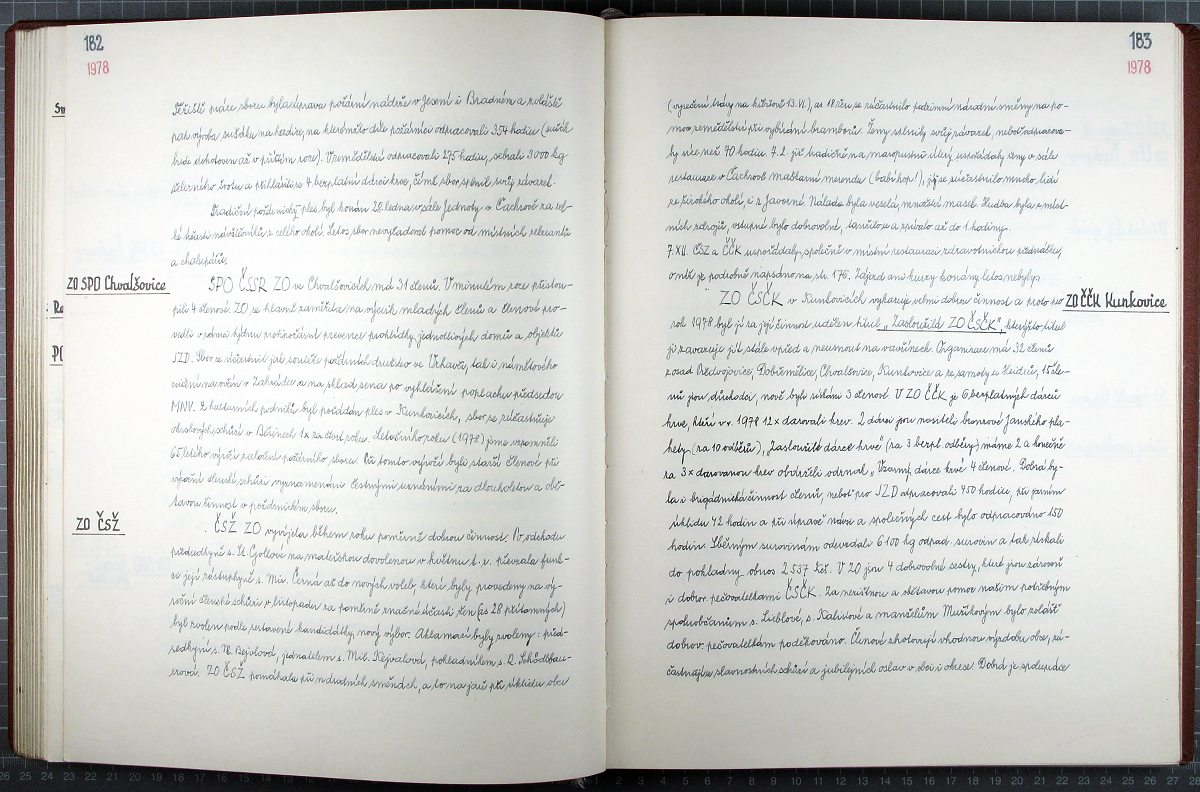 182
1978
Těžiště práce sboru byla úprava požární nádrže v Jesení i Bradném a zvláště
pak výroba sušáku na hadice, na kterémžto díle požárníci odpracovali 354 hodin (sušák
bude dohotoven až v příštím roce). V zemědělství odpracovali 275 hodin, sebrali 3000 kg
železného šrotu a přihlásili se 4 bezplatní dárci krve, čímž sbor splnil svůj závazek.
Tradiční požárnický ples byl konán 28. ledna v sále Jednoty v Čachrově za vel-
ké účasti návštěvníků z celého okolí. Letos sbor nevyžadoval pomoc od místních rekreantů
a chalupářů.
ZO SPO Chvalšovice
SPO ČSSR ZO ve Chvalšovicích má 31 členů. V minulém roce přistou-
pili 4 členové. ZO se hlavně zaměřila na výcvik mladých členů a členové pro-
vedli v rámci týdnu protipožární prevence prohlídky jednotlivých domů a objektů
JZD. Sbor se zúčastnil jak soutěže požárních družstev ve Vrhavči, tak i námětového
cvičení na oheň v Zahrádce na sklad sena po vyhlášení poplachu předsedou
MNV. Z kulturních podniků byl pořádán ples v Kunkovicích, sbor se zúčastňuje
okrskových schůzí v Běšinech 1x za čtvrt roku. Letošního roku (1978) jsme vzpomněli
65letého výročí založení požárního sboru. Při tomto výročí byli starší členové při
výroční členské schůzi vyznamenáni čestnými uznáními za dlouholetou a obě-
tavou činnost v požárnickém sboru.
ZO ČSŽ
ČSŽ ZO vyvíjela během roku poměrně dobrou činnost. Po odchodu
předsedkyně s. St. Gollové na mateřskou dovolenou v květnu t. r. převzala funk-
ci její zástupkyně s. Mir. Černá až do nových voleb, které byly provedeny na vý-
roční členské schůzi v listopadu za poměrně značné účasti žen (as 28 přítomných)
byl zvolen podle sestavené kandidátky, nový výbor. Aklamací byly zvoleny: před-
sedkyní s. N. Rejvlová, jednatelem s. Mil. Kejvalová, pokladníkem s. R. Schödlbau-
erová. ZO ČSŽ pomáhala při národních směnách, a to na jaře při úklidu obce
183
1978
(vyčesání trávy na hřbitově 13. VI.), as 18 žen se zúčastnilo podzimní národní směny na po-
moc zemědělství při vybírání brambor. Ženy splnily svůj závazek, neboť odpracova-
ly více než 70 hodin. 7. 2. již tradičně na maropustní úterý uspořádaly ženy v sále
restaurace v Čachrově maškarní merendu (babí hop!), jíž se zúčastnilo mnoho lidí
ze širokého okolí, i z Javorné. Nálada byla veselá, množství masek. Hudba byla z míst-
ních zdrojů, vstupné bylo dobrovolné, tančilo se a zpívalo až do 1 hodiny.
7. XII. ČSŽ a ČČK uspořádaly společně v místní restauraci zdravotnickou přednášku,
o níž je podrobně napsáno na str. 176. Zájezd ani kurzy konány letos nebyly.
ZO ČČK Kunkovice
ZO ČSČK v Kunkovicích vykazuje velmi dobrou činnost a proto po
rok 1978 byl jí za její činnost udělen titul „Zasloužilá ZO ČSČK“, kterýžto titul
ji zavazuje jít stále vpřed a neusnout na vavřínech. Organizace má 32 členů
z osad Předvojovice, Dobřemělice, Chvalšovice, Kunkovice a ze samoty u Heidrů, 15 čle-
nů jsou důchodci, nově byli získáni 3 členové. V ZO ČČK je 6 bezplatných dárců
krve, kteří v r. 1978 12x darovali krev. 2 dárci jsou nositeli bronzové Janského pla-
kety (za 10 odběrů), „Zasloužilé dárce krve“ (za 3 bezpl. odběry) máme 2 a konečně
za 3x darovanou krev obdrželi odznak „Vzorný dárce krve“ 4 členové. Dobrá by-
la i brigádnická činnost členů, neboť pro JZD odpracovali 450 hodin, při jarním
úklidu 42 hodin a při úpravě návsi a společných cest bylo odpracováno 150
hodin. Sběrným surovinám odevzdali 6100 kg odpad. surovin a tak získali
do pokladny obnos 2537 Kčs. V ZO jsou 4 dobrovolné sestry, které jsou zároveň
i dobrov. pečovatelkami ČSČK. Za nezištnou a obětavou pomoc našim potřebným
spoluobčanům s. Lieblové, s. Kalistové a manželům Muzikovým bylo zvláště
dobrov. pečovatelkám poděkováno. Členové zhotovují vhodnou výzdobu obce, zú-
častňují se slavnostních schůzí a jubilejních oslav v obci i okrese. Dobrá je spolupráce